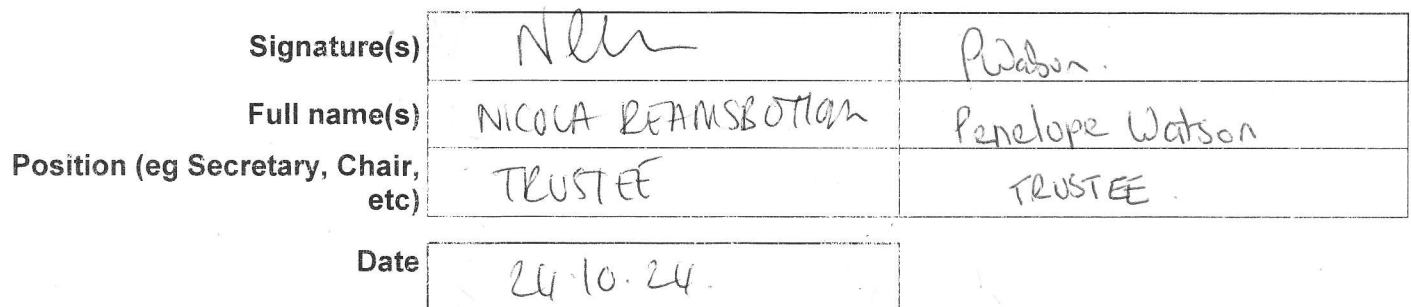 Signature(s) PWatson.
Full name(s) NICOLA REAMSBOTTOM Penelope Watson
Position (eg Secretary, Chair,
etc) TRUSTEE TRUSTEE.
Date 24.10.24.